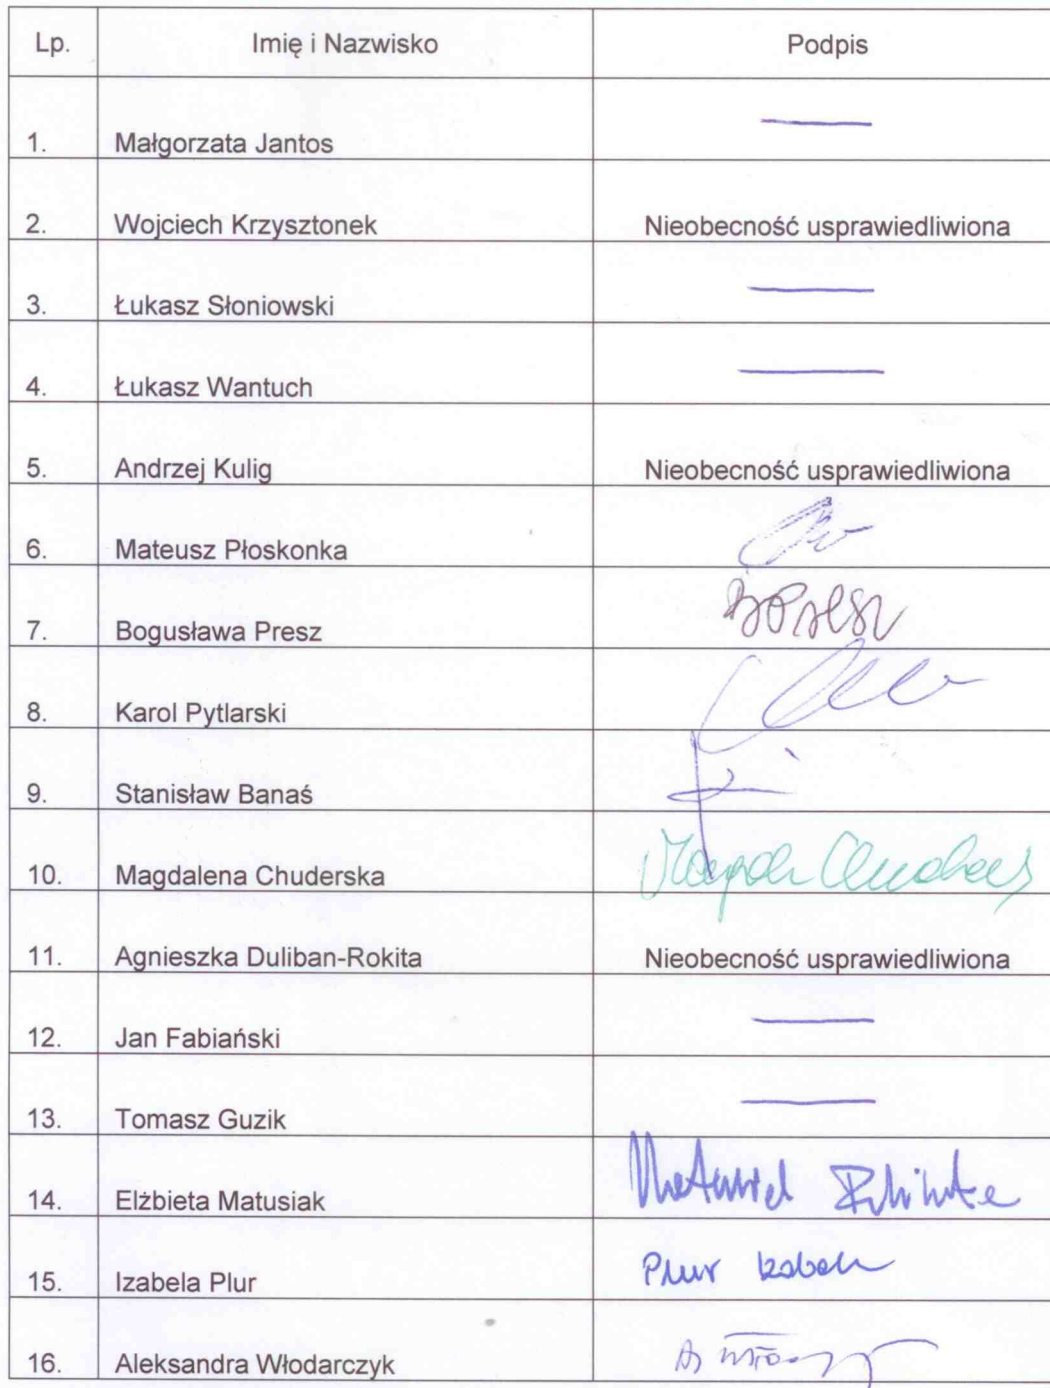 Lp. Imię i Nazwisko Podpis
1. Małgorzata Jantos
2. Wojciech Krzysztonek Nieobecność usprawiedliwiona
3. Łukasz Słoniowski
4. Łukasz Wantuch
5. Andrzej Kulig Nieobecność usprawiedliwiona
6. Mateusz Płoskonka
7. Bogusława Presz BPresz
8. Karol Pytlarski
9. Stanisław Banaś
10. Magdalena Chuderska
11. Agnieszka Duliban-Rokita Nieobecność usprawiedliwiona
12. Jan Fabiański
13. Tomasz Guzik
14. Elżbieta Matusiak
15. Izabela Plur Plur Izabela
16. Aleksandra Włodarczyk